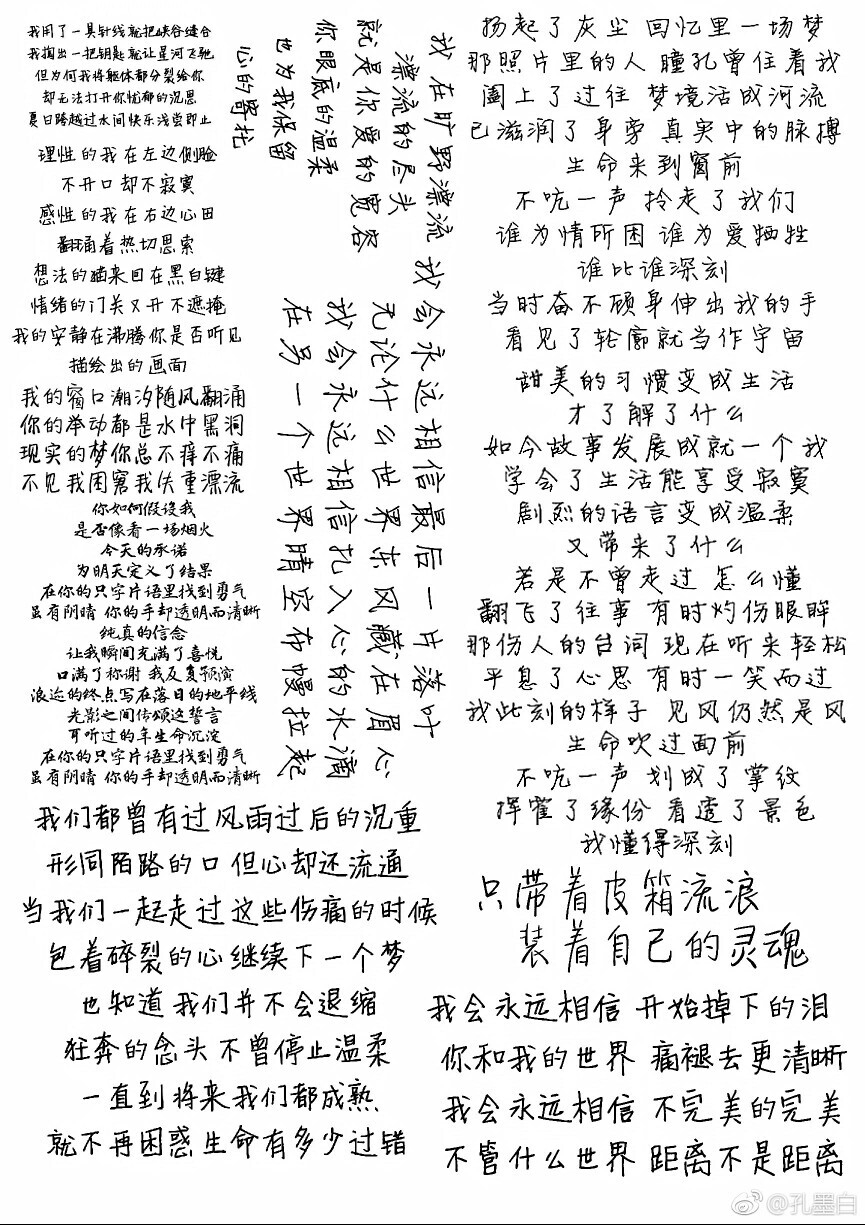 我用了一具针线就把峡谷缝合
我掏出一把钥匙就让星河飞驰
但为何我将躯体都分裂给你
却无法打开你忧郁的沉思
夏日跨越过水间快乐浅尝即止
理性的我在左边侧脸
不开口却不寂寞
感性的我在右边心田
翻涌着热切思索
想法的猫来回在黑白键
情绪的门关又开不遮掩
我的安静在沸腾你是否听见
描绘出的画面
我的窗口潮汐随风翻涌
你的举动都是水中黑洞
现实的梦你总不痒不痛
不见我困窘我失重漂流
你如何假设我
是否像看一场烟火
今天的承诺
为明天定义了结果
在你的只字片语里找到勇气
虽有阴晴 你的手却透明而清晰
纯真的信念
让我瞬间充满了喜悦
口满了称谢 我反复预演
浪迹的终点写在落日的地平线
光影之间传颂这誓言
耳听过的年生命沉淀
在你的只字片语里找到勇气
虽有阴晴 你的手却透明而清晰
我在旷野漂流
漂流的尽头
就是你爱的宽容
你眼底的温柔
也为我保留
心的寄托
我会永远相信最后一片落叶
无论什么世界东风藏在眉心
我会永远相信扎入心的水滴
在另一个世界晴空布幔拉起
我们都曾有过风雨过后的沉重
形同陌路的口 但心却还流通
当我们一起走过 这些伤痛的时候
包着碎裂的心 继续下一个梦
也知道 我们并不会退缩
狂奔的念头 不曾停止温柔
一直到将来我们都成熟
就不再困惑生命有多少过错
扬起了灰尘 回忆里一场梦
那照片里的人 瞳孔曾住着我
阖上了过往 梦境活成河流
已滋润了身旁 真实中的脉搏
生命来到窗前
不吭一声 拎走了我们
谁为情所困 谁为爱牺牲
谁比谁深刻
当时奋不顾身伸出我的手
看见了轮廓就当作宇宙
甜美的习惯变成生活
才了解了什么
如今故事发展成就一个我
学会了生活能享受寂寞
剧烈的语言变成温柔
又带来了什么
若是不曾走过 怎么懂
翻飞了往事 有时灼伤眼眸
那伤人的台词 现在听来轻松
平息了心思 有时一笑而过
我此刻的样子 见风仍然是风
生命吹过面前
不吭一声 划成了掌纹
挥霍了缘份 看透了景色
我懂得深刻
只带着皮箱流浪
装着自己的灵魂
我会永远相信 开始掉下的泪
你和我的世界 痛褪去更清晰
我会永远相信 不完美的完美
不管什么世界 距离不是距离
@孔墨白